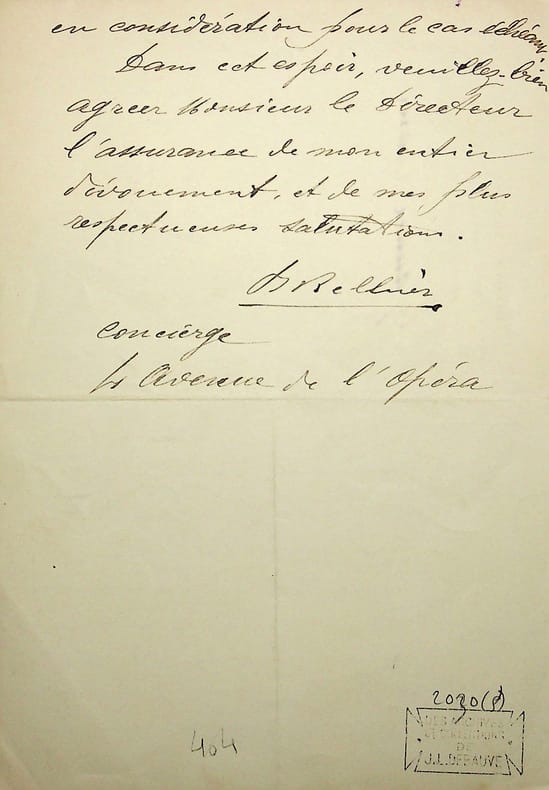 en considération pour le cas échéant
Dans cet espoir, veuillez-bien
agréer Monsieur le Directeur
l'assurance de mon entier
dévouement, et de mes plus
respectueuses salutations.
Bellier
concierge
4 Avenue de l'Opéra
2030(8)
DES ARCHIVES
ET COLLECTIONS
DE
J.L. DEBAUVE
404